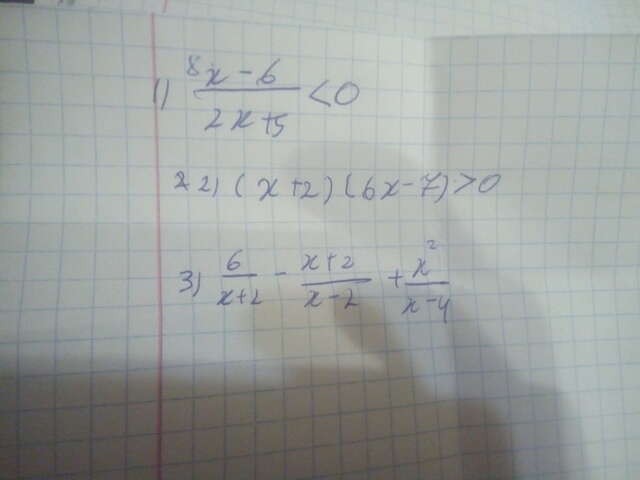 1) 8x-6/2x+5 <0
2 2) (x+2)(6x-7)>0
3) 6/x+2 - x+2/x-2 + x²/x-4